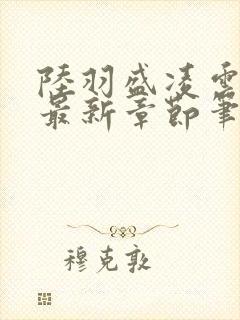 陸羽盛凌雲
最新章節筆
穆克敦